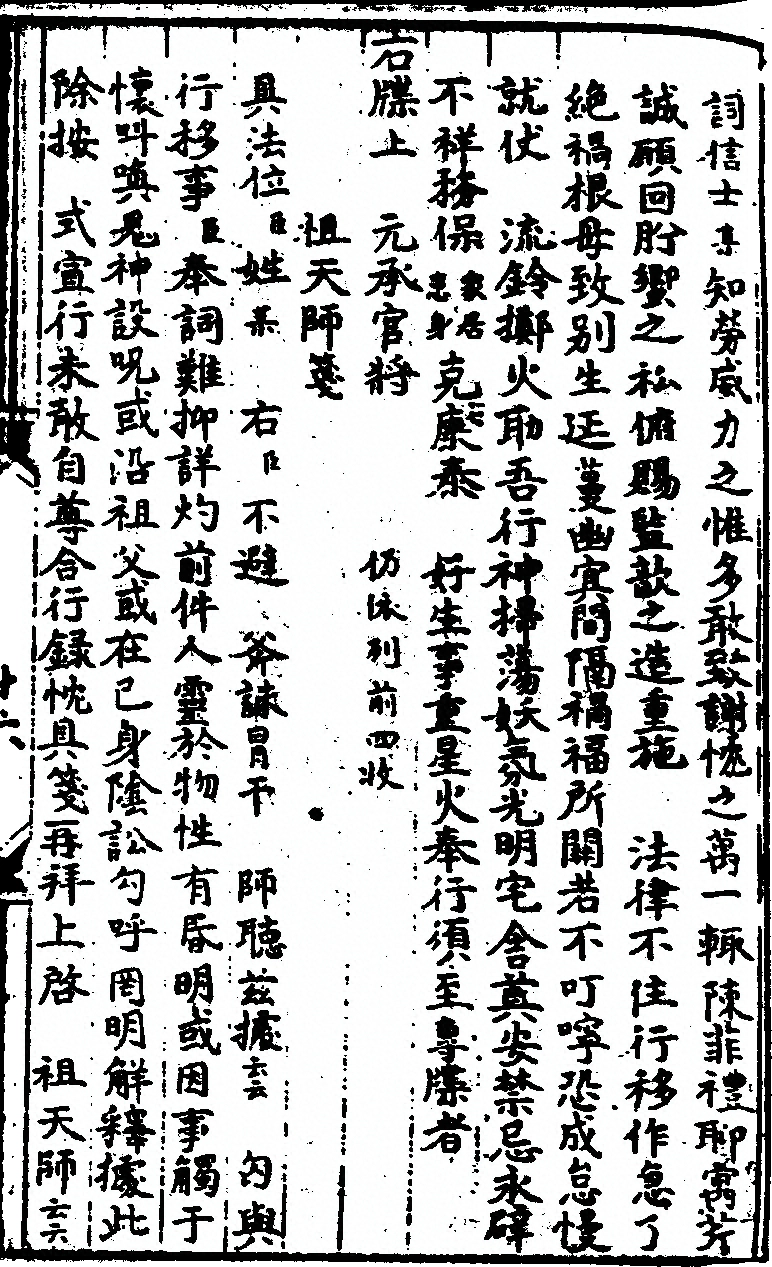 詞信士某知勞威力之惟多敢致謝忱之萬一輙陳菲禮聊寓芹
誠願回肸蠁之私俯賜監歆之造重施　法律不住行移作急了
絶禍根毋致别生迋蔓幽寞間隔禍福所關若不叮嚀恐成怠慢
就仗　流鈴擲火助吾行神掃蕩妖氛光明宅舍奠安禁忌永辟
不祥務保家居患身克康泰　好生事重星火奉行須至專牒者
右牒上　元承官將　仍依列前四收
祖天師箋
具法位臣姓某　右臣不避　斧誅冐干　師聴玆據云云　匄與
行移事臣奉詞難抑詳灼前件人靈於物性有昏明或因事觸于
懷呌嗔鬼神設呪或沿祖父或在已身陰訟勾呼罔明解釋據此
除按　式宣行未敢自尊合行録忱具箋再拜上啓　祖天師云云
十六